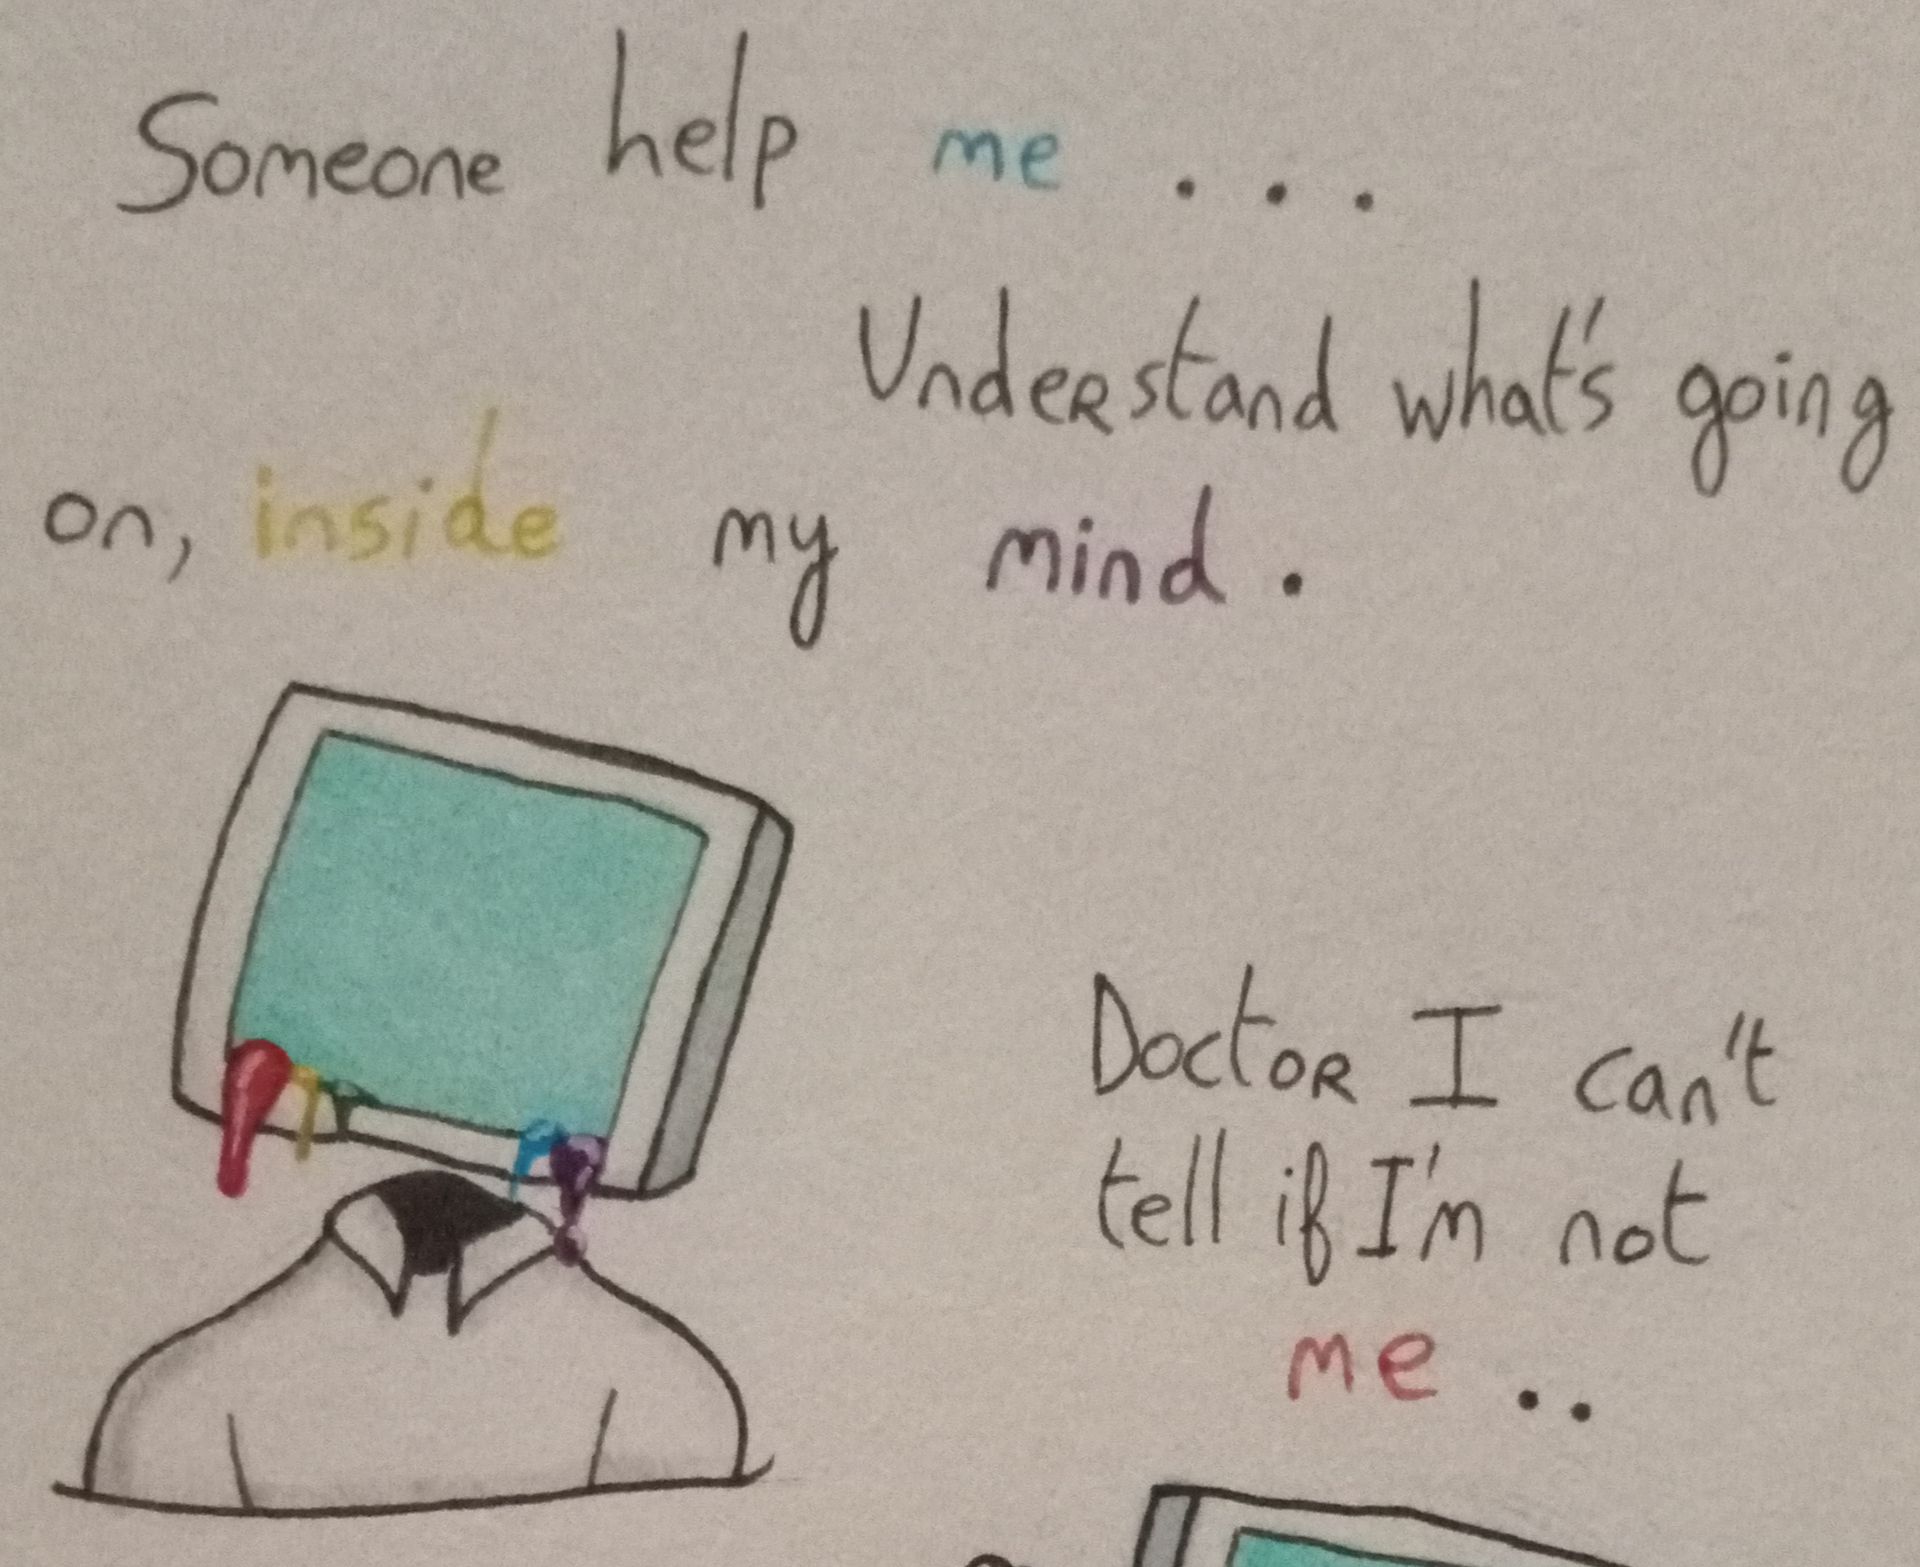 Someone help me ...
Understand what's going
on, inside my mind.
Doctor I can't
tell if I'm not
me ..